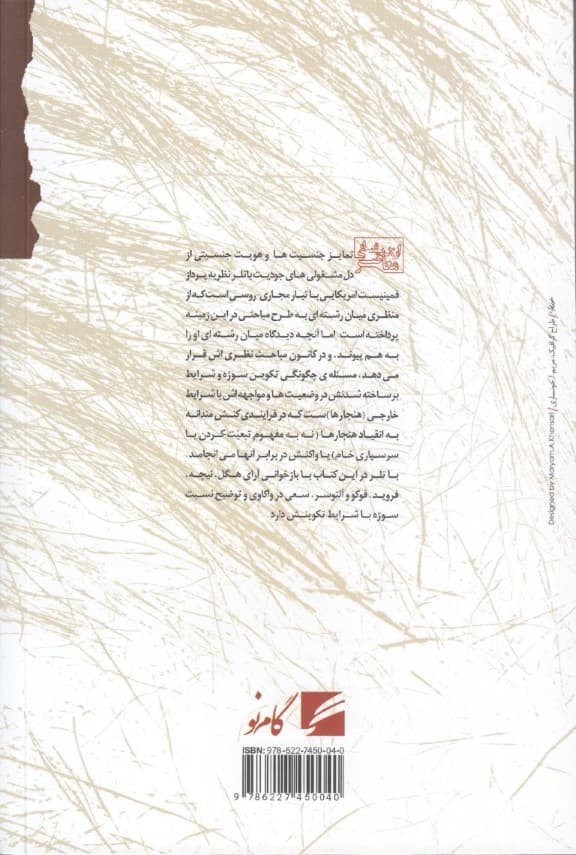 تمایز جنسیت ها و هویت جنسیتی از
دل مشغولی های جودیت باتلر نظریه پرداز
فمینیست امریکایی با تبار مجاری-روسی است که از
منظری میان رشته ای به طرح مباحثی در این زمینه
پرداخته است. اما آنچه دیدگاه میان رشته ای او را
به هم پیوند، و در کانون مباحث نظری اش قرار
می دهد، مسئله ی چگونگی تکوین سوژه و شرایط
برساخته شدنش در وضعیت ها و مواجهه اش با شرایط
خارجی (هنجارها)ست که در فرایندی کنش مندانه
به انقیاد هنجارها (نه به مفهوم تبعیت کردن یا
سرسپاری خام) یا واکنش در برابر آنها می انجامد.
باتلر در این کتاب با بازخوانی آرای هگل، نیچه،
فروید، فوکو و آلتوسر، سعی در واکاوی و توضیح نسبت
سوژه با شرایط تکوینش دارد
گام نو
ISBN: 978-622-7450-04-0
9 786227 450040
طراح گرافیک: مریم ا.خونساری / Designed by Maryam.A.Khonsari